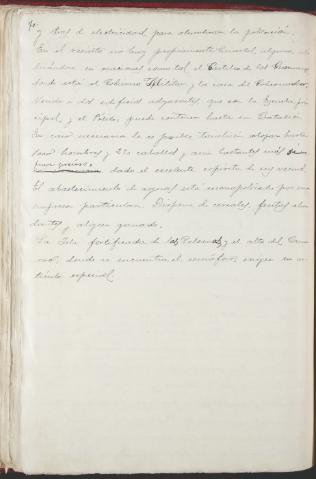 70
y luz de electricidad para alumbrar la población.
En el recinto no hay propiamente Cuartel alguno,
en ocasiones normal, el Castillo de los Guzmanes
donde está el Gobierno Militar y la casa del Gobernador,
Unido a dos edificios adyacentes que son la Escuela
cipal, y el Pósito, puede contener hasta un Batallón.
En caso necesario le es posible también alojar hasta
hombres y 250 caballos y aun bastantes más si
fuera preciso, dado el excelente espíritu de su vecind
El abastecimiento de aguas está monopolizado por una
empresa particular. Dispone de cereales, frutas abun
dantes y algun ganado.
La Isla fortificada de las Palomas y el alto del Cam
, donde se encuentra el semáforo, exigen un ar
tículo especial.